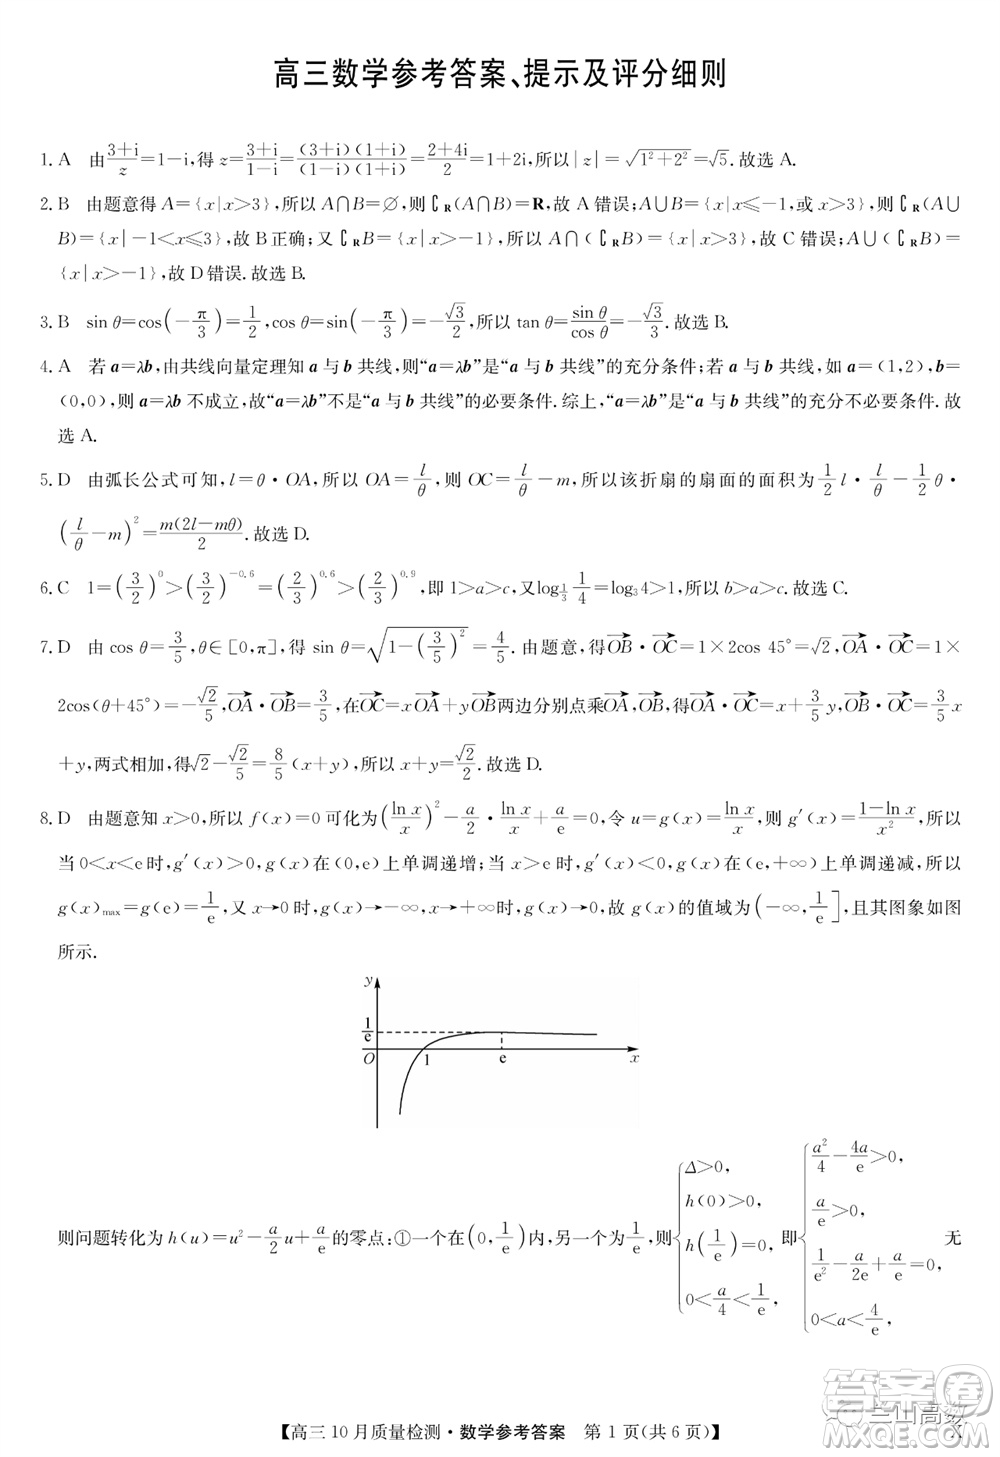 高三数学参考答案、提示及评分细则
1. A 由(3+i)/z=1-i,得 z=(3+i)/(1-i)=(3+i)(1+i)/(1-i)(1+i)=(2+4i)/2=1+2i,所以|z|=√(1²+2²)=√5.故选 A.
2. B 由题意得 A={x|x>3},所以 A∩B=∅,则∁R(A∩B)=R,故 A 错误;A∪B={x|x≤-1,或 x>3},所以∁R(A∪
B)={x|-1<x≤3},故 B 正确;又∁RB={x|x>-1},所以 A∩(∁RB)={x|x>3},故 C 错误;A∪(∁RB)=
{x|x>-1},故 D 错误.故选 B.
3. B sin θ=cos(-π/3)=1/2,cos θ=sin(-π/3)=-√3/2,所以 tan θ=sin θ/cos θ=-√3/3.故选 B.
4. A 若 a=λb,由共线向量定理知 a 与 b 共线,则“a=λb”是“a 与 b 共线”的充分条件;若 a 与 b 共线,如 a=(1,2),b=
(0,0),则 a=λb 不成立,故“a=λb”不是“a 与 b 共线”的必要条件.综上,“a=λb”是“a 与 b 共线”的充分不必要条件.故
选 A.
5. D 由弧长公式可知,l=θ·OA,所以 OA=l/θ,则 OC=l/θ-m,所以该折扇的扇面的面积为 1/2 l·l/θ-1/2 θ·
(l/θ-m)²=m(2l-mθ)/2.故选 D.
6. C 1=(3/2)^0>(3/2)^-0.6=(2/3)^0.6>(2/3)^0.9,即 1>a>c,又 log1/3 1/4=log3 4>1,所以 b>a>c.故选 C.
7. D 由 cos θ=3/5,θ∈[0,π],得 sin θ=√(1-(3/5)²)=4/5.由题意,得→OB·→OC=1×2cos 45°=√2,→OA·→OC=1×
2cos(θ+45°)=-√2/5,→OA·→OB=3/5,在→OC=x→OA+y→OB两边分别点乘→OA,→OB,得→OA·→OC=x+3/5 y,→OB·→OC=3/5 x
+y,两式相加,得√2-√2/5=8/5(x+y),所以 x+y=√2/2.故选 D.
8. D 由题意知 x>0,所以 f(x)=0 可化为(ln x/x)²-a/2·ln x/x+a/e=0,令 u=g(x)=ln x/x,则 g′(x)=(1-ln x)/x²,所以
当 0<x<e 时,g′(x)>0,g(x)在(0,e)上单调递增;当 x>e 时,g′(x)<0,g(x)在(e,+∞)上单调递减,所以
g(x)max=g(e)=1/e,又 x→0 时,g(x)→-∞,x→+∞时,g(x)→0,故 g(x)的值域为(-∞,1/e],且其图象如图
所示.
y
1/e
O 1 e x
则问题转化为 h(u)=u²-a/2 u+a/e 的零点:①一个在(0,1/e)内,另一个为1/e,则{Δ>0, h(0)>0, h(1/e)=0, 0<a/4<1/e, 即{a²/4-4a/e>0, a/e>0, 1/e²-a/2e+a/e=0, 0<a<4/e, 无
【高三 10 月质量检测·数学参考答案 第 1 页(共 6 页)】
X
答案圈
三山高数